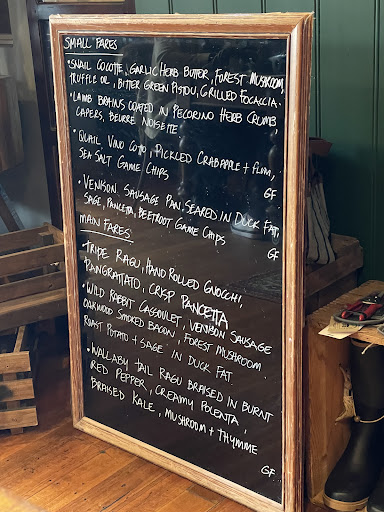 SMALL FARES
• SNAIL COCOTTE, GARLIC HERB BUTTER, FOREST MUSHROOM,
TRUFFLE OIL, BITTER GREEN PISTOU, GRILLED FOCACCIA.
• LAMB BRAINS COATED IN PECORINO HERB CRUMB,
CAPERS, BEURRE NOISETTE
• QUAIL VINO COTTO, PICKLED CRABAPPLE + PLUM,
SEA SALT GAME CHIPS
GF
• VENISON SAUSAGE PAN SEARED IN DUCK FAT,
SAGE, PANCETTA, BEETROOT GAME CHIPS
GF
MAIN FARES
• TRIPE RAGU, HAND ROLLED GNOCCHI,
PANGRATTATO, CRISP PANCETTA
• WILD RABBIT CASSOULET, VENISON SAUSAGE
OAKWOOD SMOKED BACON, FOREST MUSHROOM
ROAST POTATO + SAGE IN DUCK FAT.
• WALLABY TAIL RAGU BRAISED IN BURNT
RED PEPPER, CREAMY POLENTA,
BRAISED KALE, MUSHROOM + THYMME
GF